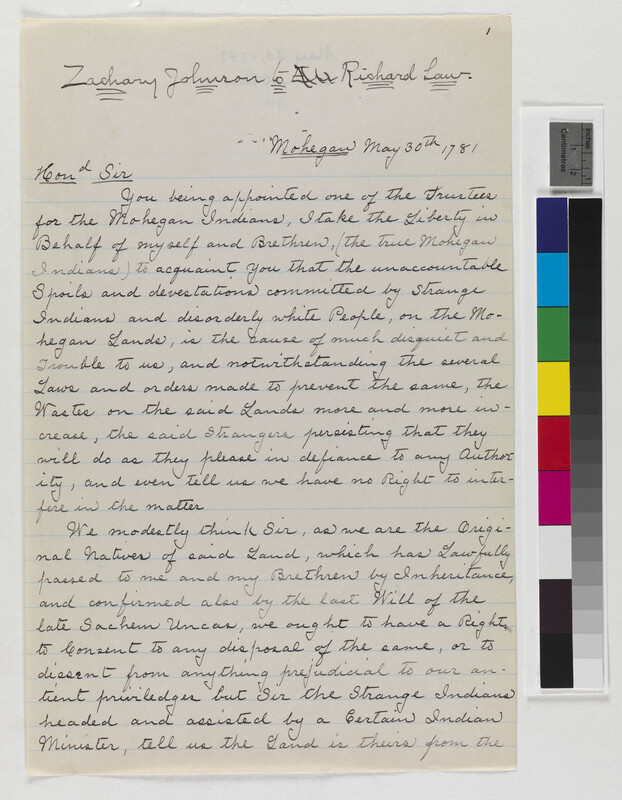 1
Zachary Johnson to Richard Law.
Mohegan May 30th 1781
Hond Sir
You being appointed one of the Trustees
for the Mohegan Indians, I take the Liberty in
Behalf of myself and Brethren, (the true Mohegan
Indians) to acquaint you that the unaccountable
Spoils and devestations committed by Strange
Indians and disorderly white People, on the Mo-
hegan Lands, is the cause of much disquiet and
Trouble to us, and notwithstanding the several
Laws and orders made to prevent the same, the
Wastes on the said Lands more and more in-
crease, the said Strangers persisting that they
will do as they please in defiance to any Author
ity, and even tell us we have no Right to inter-
fere in the matter
We modestly think Sir, as we are the Origi-
nal Natives of said Land, which has Lawfully
passed to me and my Brethren by Inheritance,
and confirmed also by the last Will of the
late Sachem Uncas, we ought to have a Right
to Consent to any disposal of the same, or to
dissent from anything prejudicial to our an-
tient priviledges but Sir the Strange Indians
headed and assisted by a Certain Indian
Minister, tell us the Land is theirs from the
Centimetres
Inches
1
2